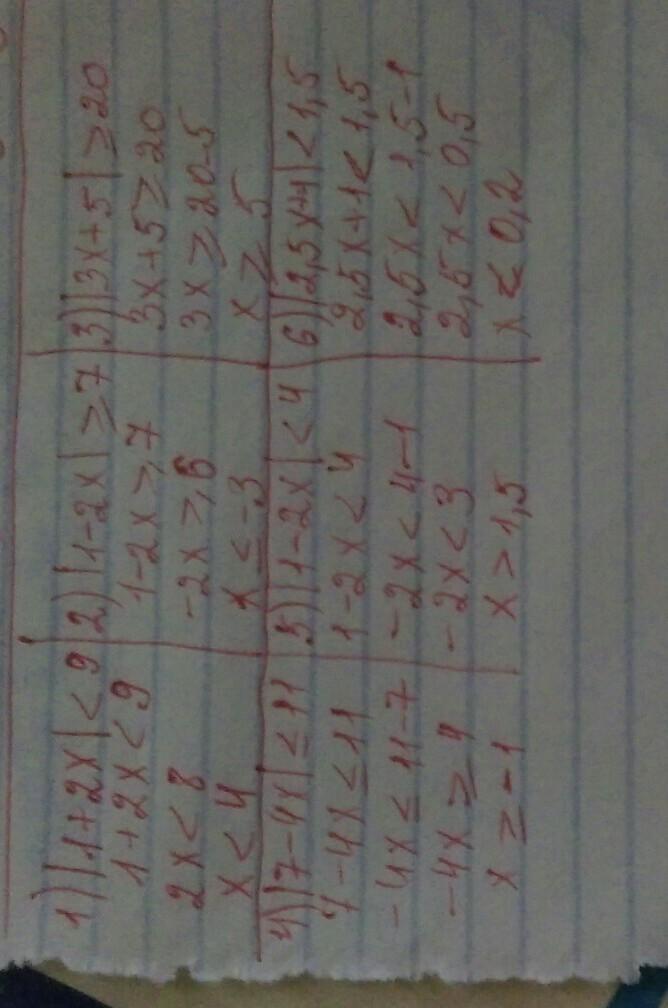 1) |1+2x| < 9
1+2x < 9
2x < 8
x < 4
2) |1-2x| ≥ 7
1-2x ≥ 7
-2x ≥ 6
x ≤ -3
3) |3x+5| ≥ 20
3x+5 ≥ 20
3x ≥ 20-5
x ≥ 5
4) |7-4x| ≤ 11
7-4x ≤ 11
-4x ≤ 11-7
-4x ≥ 4
x ≥ -1
5) |1-2x| < 4
1-2x < 4
-2x < 4-1
-2x < 3
x > 1,5
6) |2,5x+1| < 1,5
2,5x+1 < 1,5
2,5x < 1,5-1
2,5x < 0,5
x < 0,2